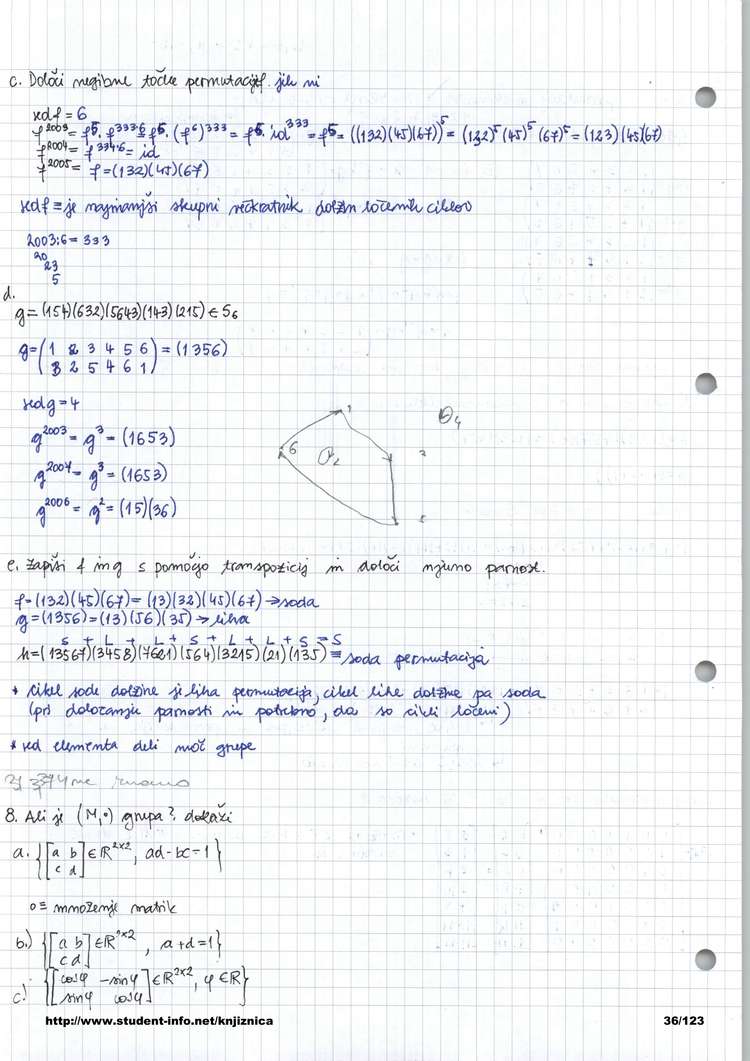 c. Določi negibne točke permutacije f. jih ni
red f = 6
f^2003 = f^5 · f^333·6 = f^5 · (f^6)^333 = f^5 · id^333 = f^5 = ((132)(45)(67))^5 = (132)^5 (45)^5 (67)^5 = (123)(45)(67)
f^2004 = f^334·6 = id
f^2005 = f = (132)(45)(67)
red f ≡ je najmanjši skupni večkratnik dolžin ločenih ciklov
2003:6 = 333
20
23
5
d.
g = (154)(632)(5643)(143)(215) ∈ S6
g = (1 2 3 4 5 6) = (1356)
3 2 5 4 6 1
red g = 4
g^2003 = g^3 = (1653)
g^2007 = g^3 = (1653)
g^2006 = g^2 = (15)(36)
1
6
e. Zapiši f in g s pomočjo transpozicij in določi njuno parnost.
f = (132)(45)(67) = (13)(32)(45)(67) → soda
g = (1356) = (13)(56)(35) → liha
S + L + L + S + L + L + S = S
h = (13567)(3458)(7621)(564)(3215)(21)(135) = soda permutacija
* cikel sode dolžine je liha permutacija, cikel lihe dolžine pa soda
(pri določanju parnosti ni potrebno, da so cikli ločeni)
* red elementa deli moč grupe
8. Ali je (M, ∘) grupa? dokaži
a. {[a b] ∈ R^2×2, ad - bc = 1}
c d
∘ ≡ množenje matrik
b.) {[a b] ∈ R^2×2, a + d = 1}
c d
c.) {[cos φ -sin φ] ∈ R^2×2, φ ∈ R}
sin φ cos φ
http://www.student-info.net/knjiznica 36/123